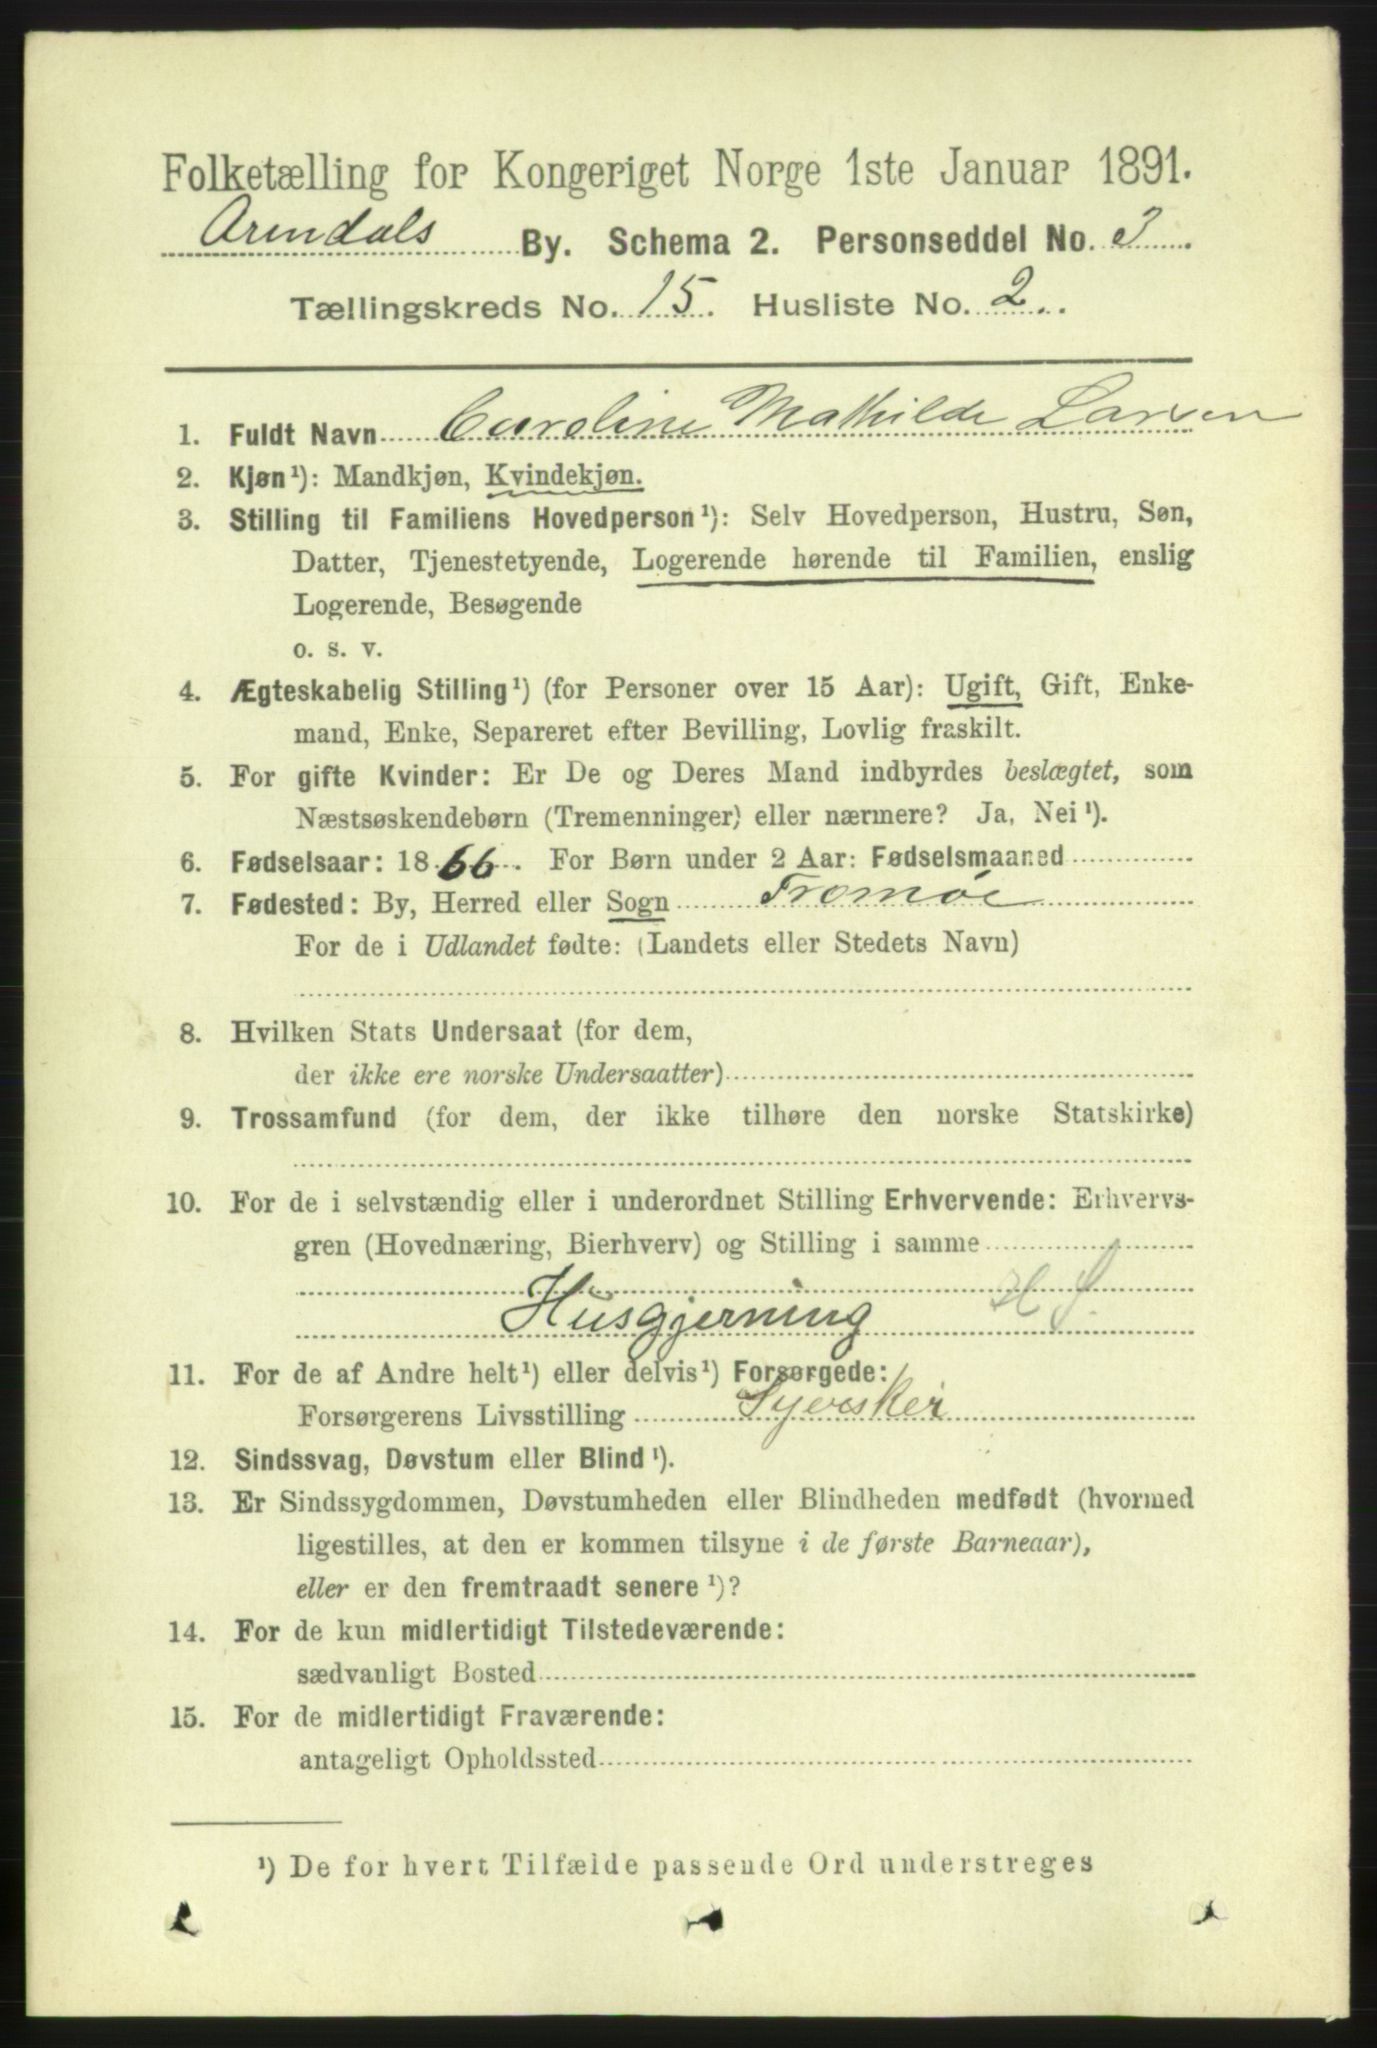 Folketælling for Kongeriget Norge 1ste Januar 1891.
Arendals By. Schema 2. Personseddel No. 3.
Tællingskreds No. 15. Husliste No. 2.
1. Fuldt Navn Caroline Mathilde Larsen
2. Kjøn¹): Mandkjøn, Kvindekjøn.
3. Stilling til Familiens Hovedperson¹): Selv Hovedperson, Hustru, Søn,
Datter, Tjenestetyende, Logerende hørende til Familien, enslig
Logerende, Besøgende
o. s. v.
4. Ægteskabelig Stilling¹) (for Personer over 15 Aar): Ugift, Gift, Enke-
mand, Enke, Separeret efter Bevilling, Lovlig fraskilt.
5. For gifte Kvinder: Er De og Deres Mand indbyrdes beslægtet, som
Næstsøskendebørn (Tremenninger) eller nærmere? Ja, Nei¹).
6. Fødselsaar: 1866. For Børn under 2 Aar: Fødselsmaaned
7. Fødested: By, Herred eller Sogn Tromøe
For de i Udlandet fødte: (Landets eller Stedets Navn)
8. Hvilken Stats Undersaat (for dem,
der ikke ere norske Undersaatter)
9. Trossamfund (for dem, der ikke tilhøre den norske Statskirke)
10. For de i selvstændig eller i underordnet Stilling Erhvervende: Erhvervs-
gren (Hovednæring, Bierhverv) og Stilling i samme
Husgjerning
11. For de af Andre helt¹) eller delvis¹) Forsørgede:
Forsørgerens Livsstilling Syerske
12. Sindssvag, Døvstum eller Blind¹).
13. Er Sindssygdommen, Døvstumheden eller Blindheden medfødt (hvormed
ligestilles, at den er kommen tilsyne i de første Barneaar),
eller er den fremtraadt senere¹)?
14. For de kun midlertidigt Tilstedeværende:
sædvanligt Bosted
15. For de midlertidigt Fraværende:
antageligt Opholdssted
¹) De for hvert Tilfælde passende Ord understreges